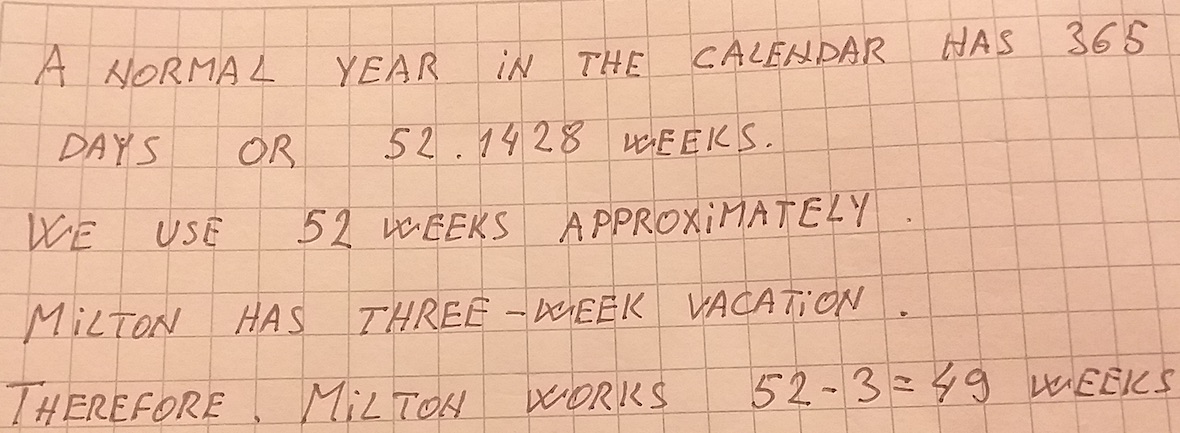 A NORMAL YEAR iN THE CALENDAR HAS 365
DAYS OR 52.1428 WEEKS.
WE USE 52 WEEKS APPROXiMATELY.
MiLTON HAS THREE-WEEK VACATiON.
THEREFORE, MiLTON WORKS 52-3=49 WEEKS